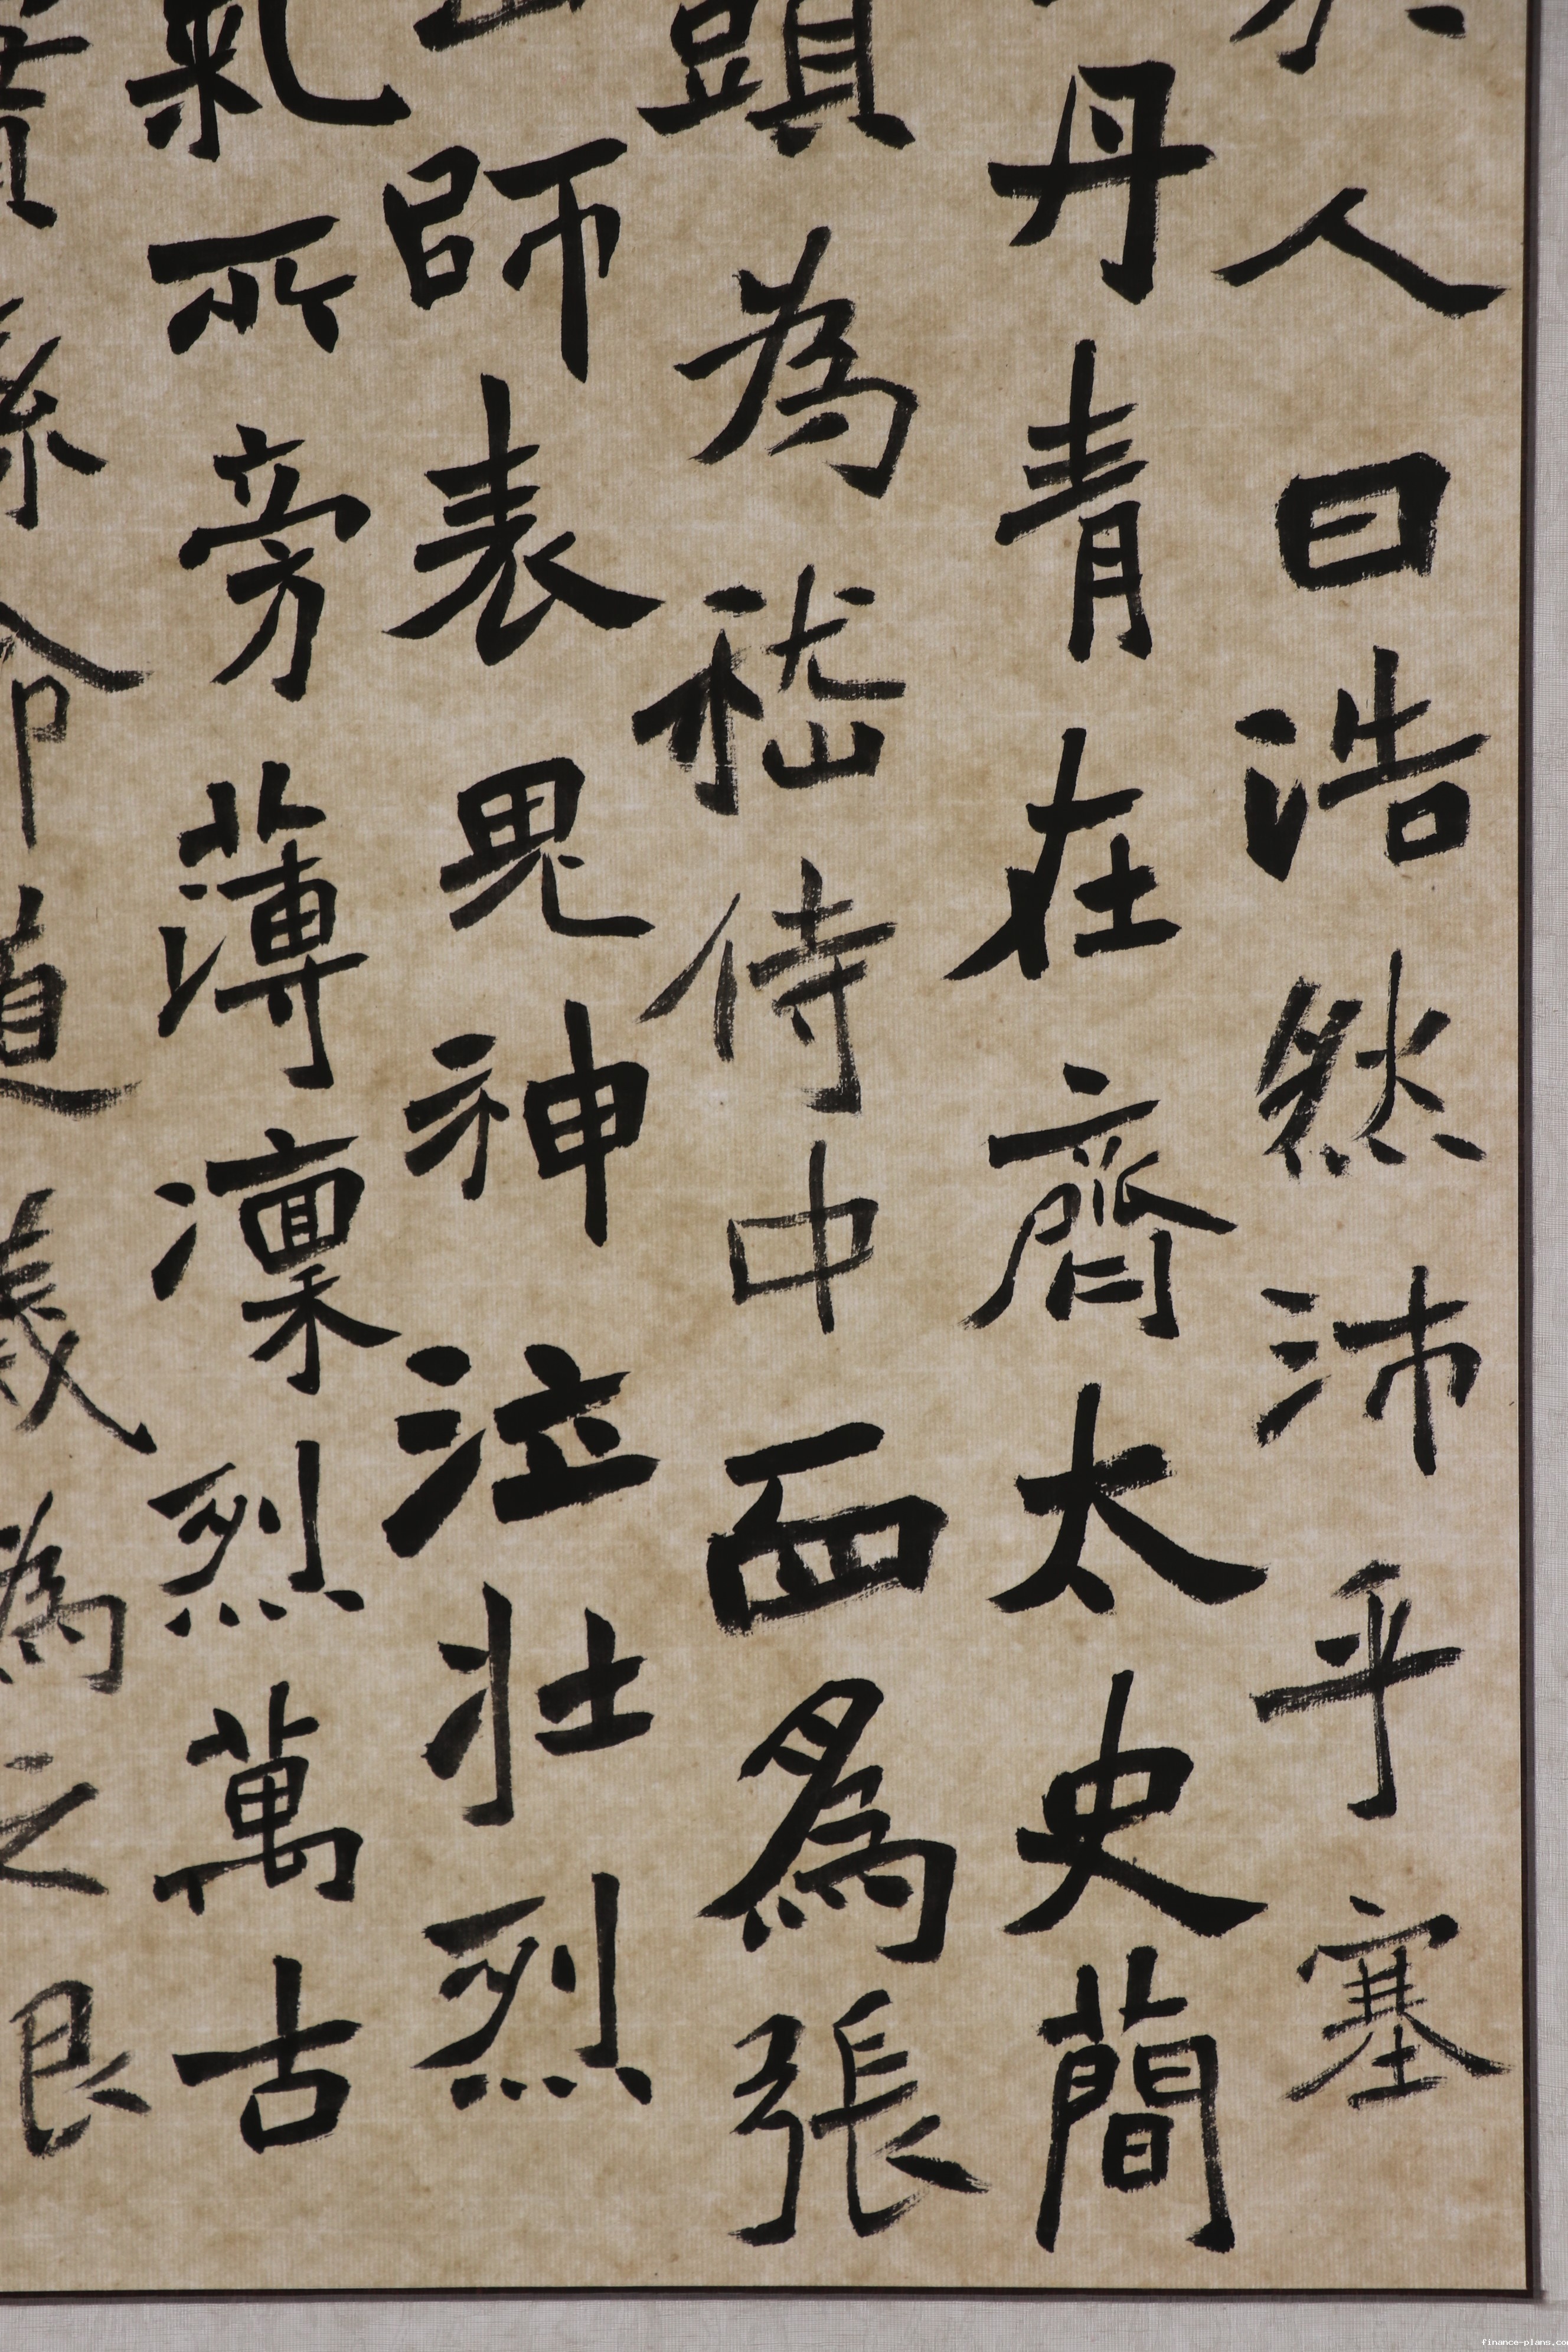 人曰浩然沛乎塞
丹青在齊太史簡
頭為嵇侍中血爲張
師表鬼神泣壯烈
氣所旁薄凛烈萬古
係命道義為之根